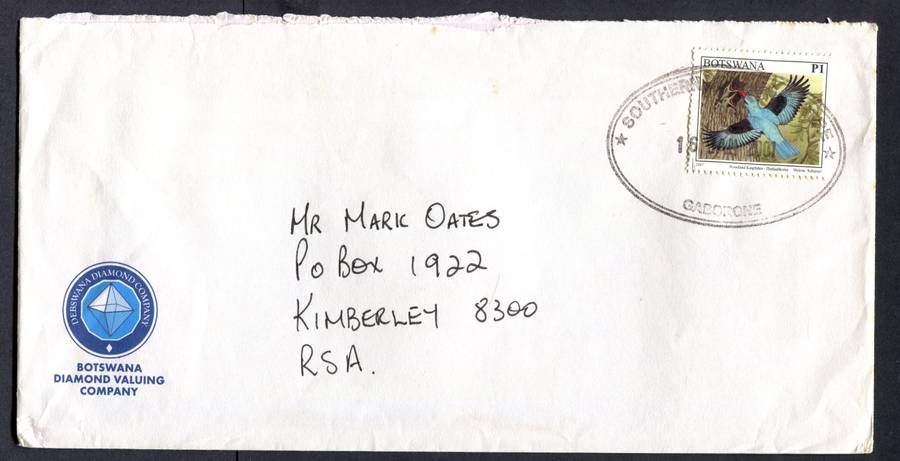 BOTSWANA P1
SOUTHERN
GABORONE
MR MARK OATES
PO BOX 1922
KIMBERLEY 8300
RSA.
DEBSWANA DIAMOND COMPANY
BOTSWANA
DIAMOND VALUING
COMPANY